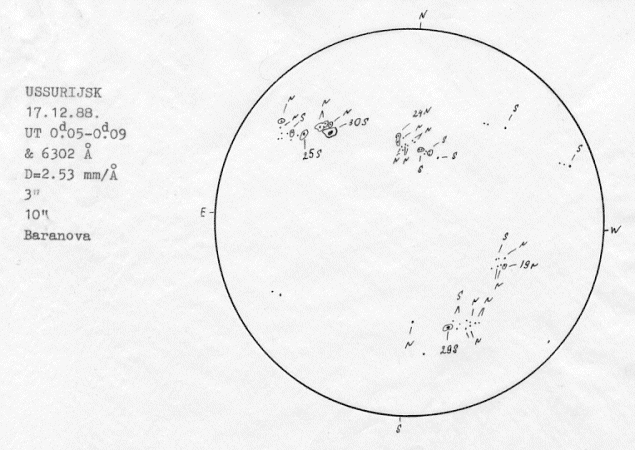 USSURIJSK
17.12.88.
UT 0ᵈ.05-0ᵈ.09
& 6302 Å
D=2.53 mm/Å
3"
10"
Baranova
N
N
N
N
S
N
30S
25S
24N
N
N
N
N
S
S
S
S
S
E
W
S
N
19N
N
S
N
N
N
N
29S
S